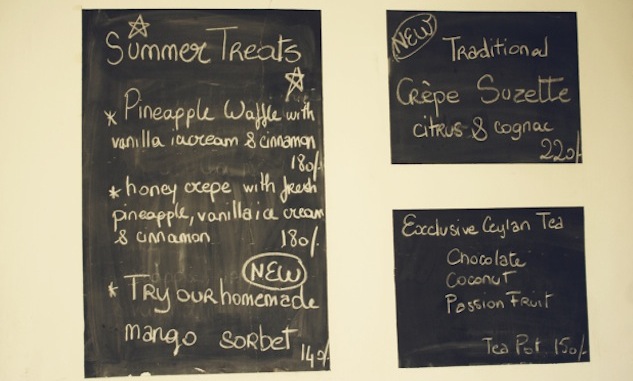 Summer Treats
* Pineapple Waffle with
vanilla icecream & cinnamon
180/-
* honey crepe with fresh
pineapple, vanilla ice cream
& cinnamon 180/-
NEW
* Try our homemade
mango sorbet 140/-
NEW
Traditional
Crêpe Suzette
citrus & cognac
220/-
Exclusive Ceylan Tea
Chocolate
Coconut
Passion Fruit
Tea Pot 150/-